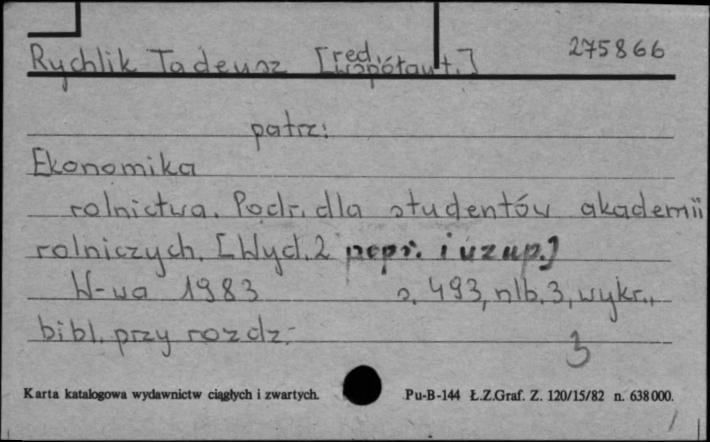 275866
Rychlik Tadeusz [red. współaut.]
patrz:
Ekonomika
rolnictwa. Podr. dla studentów akademii
rolniczych. [Wyd. 2 popr. i uzup.]
W-wa 1983 s. 493, nlb. 3, wykr.,
bibl. przy rozdz.
3
Karta katalogowa wydawnictw ciągłych i zwartych. Pu-B-144 Ł.Z.Graf. Z. 120/15/82 n. 638000.